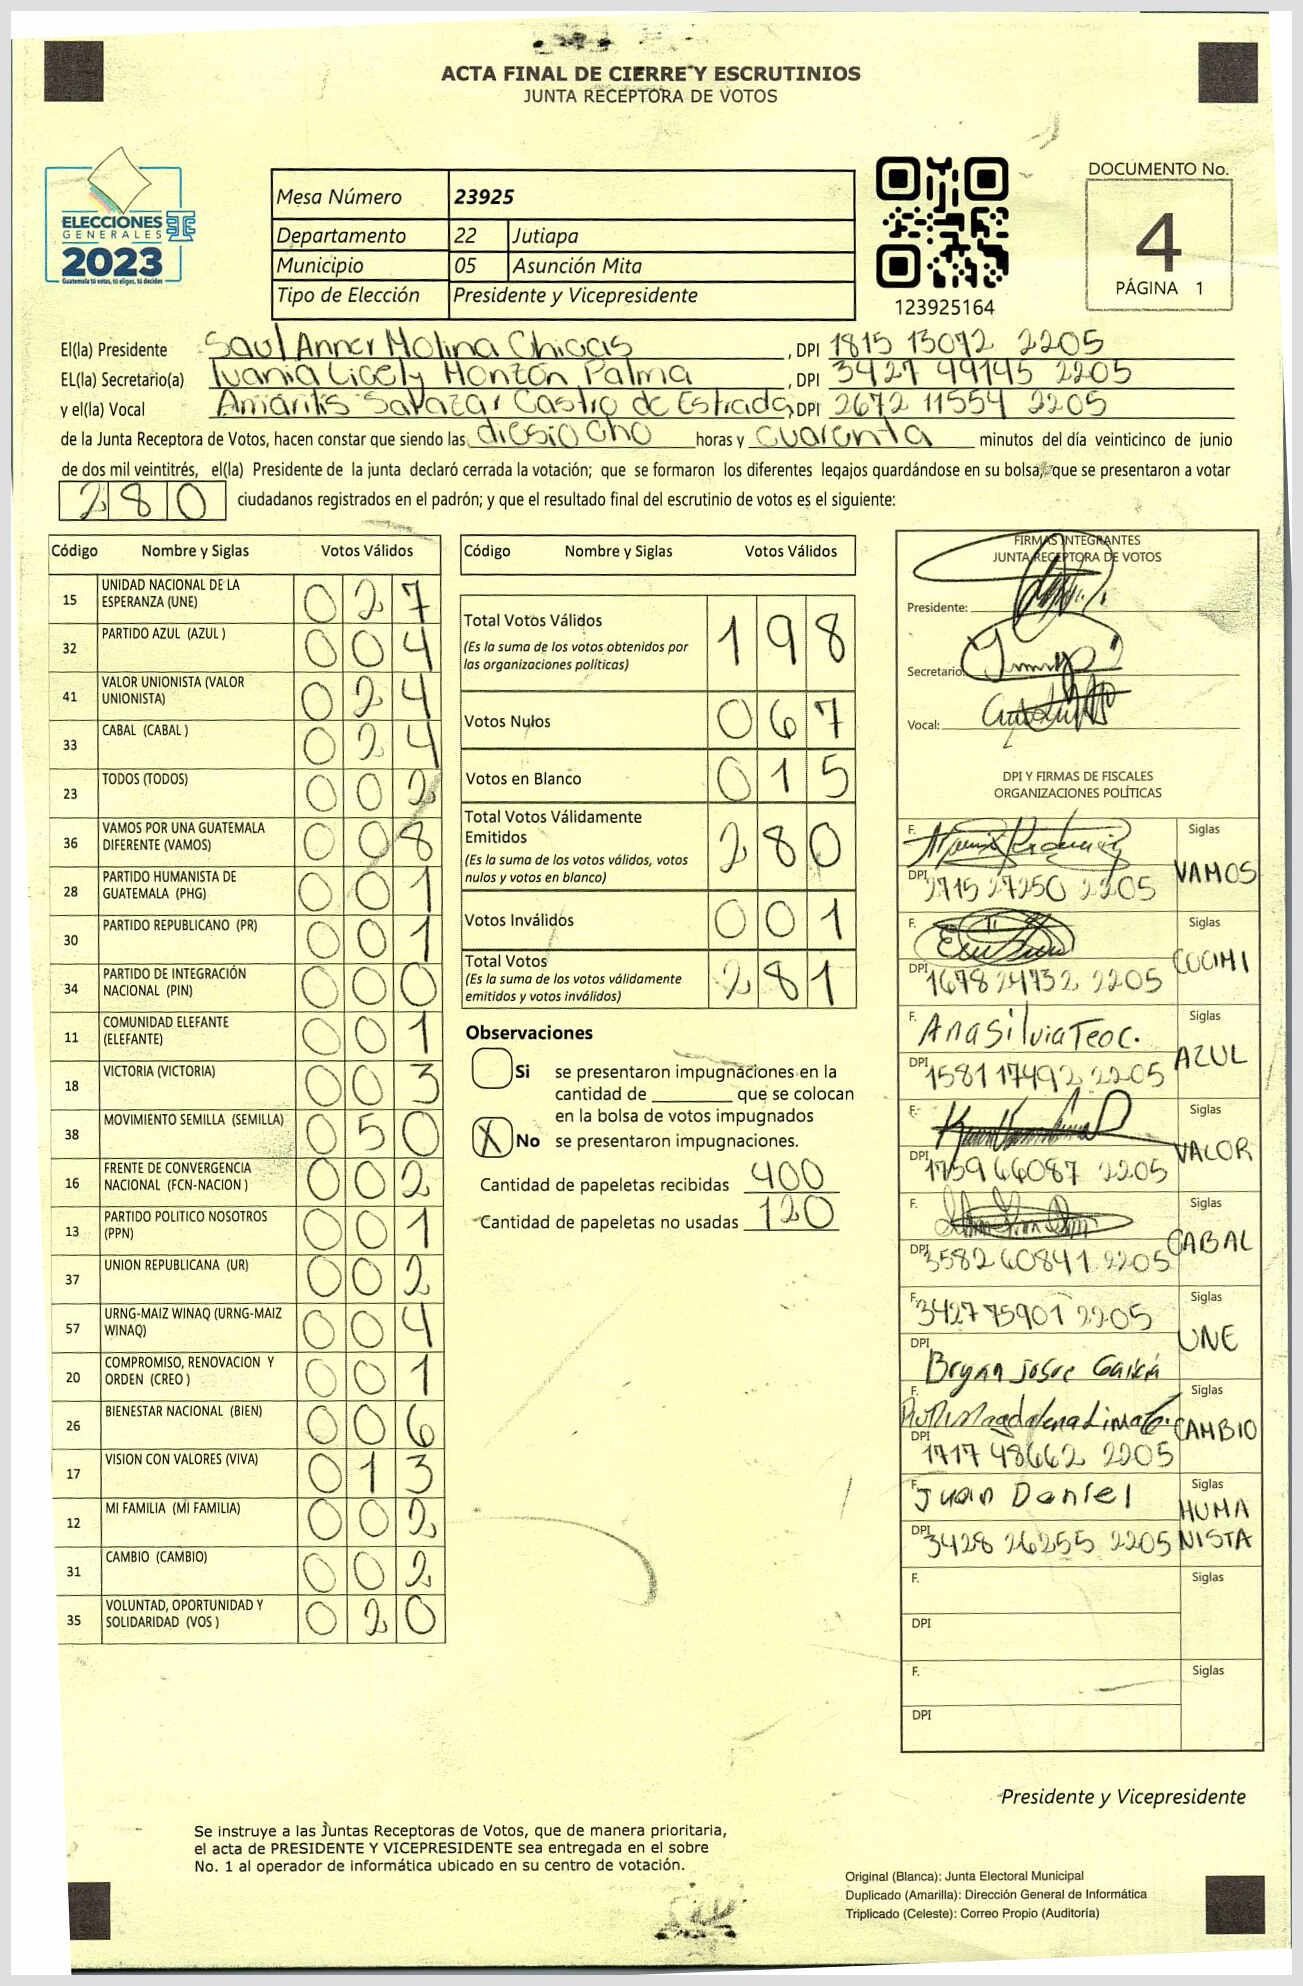 ACTA FINAL DE CIERRE Y ESCRUTINIOS
JUNTA RECEPTORA DE VOTOS
ELECCIONES
GENERALES
2023
Guatemala tú votas, tú eliges, tú decides
Mesa Número 23925
Departamento 22 Jutiapa
Municipio 05 Asunción Mita
Tipo de Elección Presidente y Vicepresidente
123925164
DOCUMENTO No.
4
PÁGINA 1
El(la) Presidente Saul Anner Molina Chicas, DPI 1815 13092 2205
EL(la) Secretario(a) Ivania Licely Monzón Palma, DPI 3427 99145 2205
y el(la) Vocal Amarilis Salazar Castro de Estrada, DPI 2672 11554 2205
de la Junta Receptora de Votos, hacen constar que siendo las diesiocho horas y cuarenta minutos del día veinticinco de junio
de dos mil veintitrés, el(la) Presidente de la junta declaró cerrada la votación; que se formaron los diferentes legajos guardándose en su bolsa, que se presentaron a votar
280 ciudadanos registrados en el padrón; y que el resultado final del escrutinio de votos es el siguiente:
Código Nombre y Siglas Votos Válidos
15 UNIDAD NACIONAL DE LA ESPERANZA (UNE) 027
32 PARTIDO AZUL (AZUL ) 004
41 VALOR UNIONISTA (VALOR UNIONISTA) 024
33 CABAL (CABAL ) 024
23 TODOS (TODOS) 002
36 VAMOS POR UNA GUATEMALA DIFERENTE (VAMOS) 008
28 PARTIDO HUMANISTA DE GUATEMALA (PHG) 001
30 PARTIDO REPUBLICANO (PR) 001
34 PARTIDO DE INTEGRACIÓN NACIONAL (PIN) 000
11 COMUNIDAD ELEFANTE (ELEFANTE) 001
18 VICTORIA (VICTORIA) 003
38 MOVIMIENTO SEMILLA (SEMILLA) 050
16 FRENTE DE CONVERGENCIA NACIONAL (FCN-NACION ) 002
13 PARTIDO POLITICO NOSOTROS (PPN) 001
37 UNION REPUBLICANA (UR) 002
57 URNG-MAIZ WINAQ (URNG-MAIZ WINAQ) 004
20 COMPROMISO, RENOVACION Y ORDEN (CREO ) 001
26 BIENESTAR NACIONAL (BIEN) 006
17 VISION CON VALORES (VIVA) 013
12 MI FAMILIA (MI FAMILIA) 002
31 CAMBIO (CAMBIO) 002
35 VOLUNTAD, OPORTUNIDAD Y SOLIDARIDAD (VOS ) 020
Código Nombre y Siglas Votos Válidos
Total Votos Válidos 198
(Es la suma de los votos obtenidos por
las organizaciones políticas)
Votos Nulos 067
Votos en Blanco 015
Total Votos Válidamente
Emitidos 280
(Es la suma de los votos válidos, votos
nulos y votos en blanco)
Votos Inválidos 001
Total Votos 281
(Es la suma de los votos válidamente
emitidos y votos inválidos)
Observaciones
Si se presentaron impugnaciones en la
cantidad de ________ que se colocan
en la bolsa de votos impugnados
X No se presentaron impugnaciones.
Cantidad de papeletas recibidas 400
Cantidad de papeletas no usadas 120
FIRMAS INTEGRANTES
JUNTA RECEPTORA DE VOTOS
Presidente:
Secretario:
Vocal:
DPI Y FIRMAS DE FISCALES
ORGANIZACIONES POLÍTICAS
F. Siglas
DPI 2715 27250 2205 VAMOS
F. Siglas
DPI 1678 24732 2205
F. Ana Silvia Teoc. Siglas
DPI 1581 17492 2205 AZUL
F. Siglas
DPI 1759 66087 2205 VALOR
F. Siglas
DPI 3582 60841 2205 CABAL
F. 3427 75901 2205 Siglas
DPI Bryan Josue García UNE
F. Siglas
DPI 1717 48662 2205 CAMBIO
F. Juan Daniel Siglas
DPI 3428 26255 2205 HUMANISTA
F. Siglas
DPI
F. Siglas
DPI
Presidente y Vicepresidente
Se instruye a las Juntas Receptoras de Votos, que de manera prioritaria,
el acta de PRESIDENTE Y VICEPRESIDENTE sea entregada en el sobre
No. 1 al operador de informática ubicado en su centro de votación.
Original (Blanca): Junta Electoral Municipal
Duplicado (Amarilla): Dirección General de Informática
Triplicado (Celeste): Correo Propio (Auditoría)